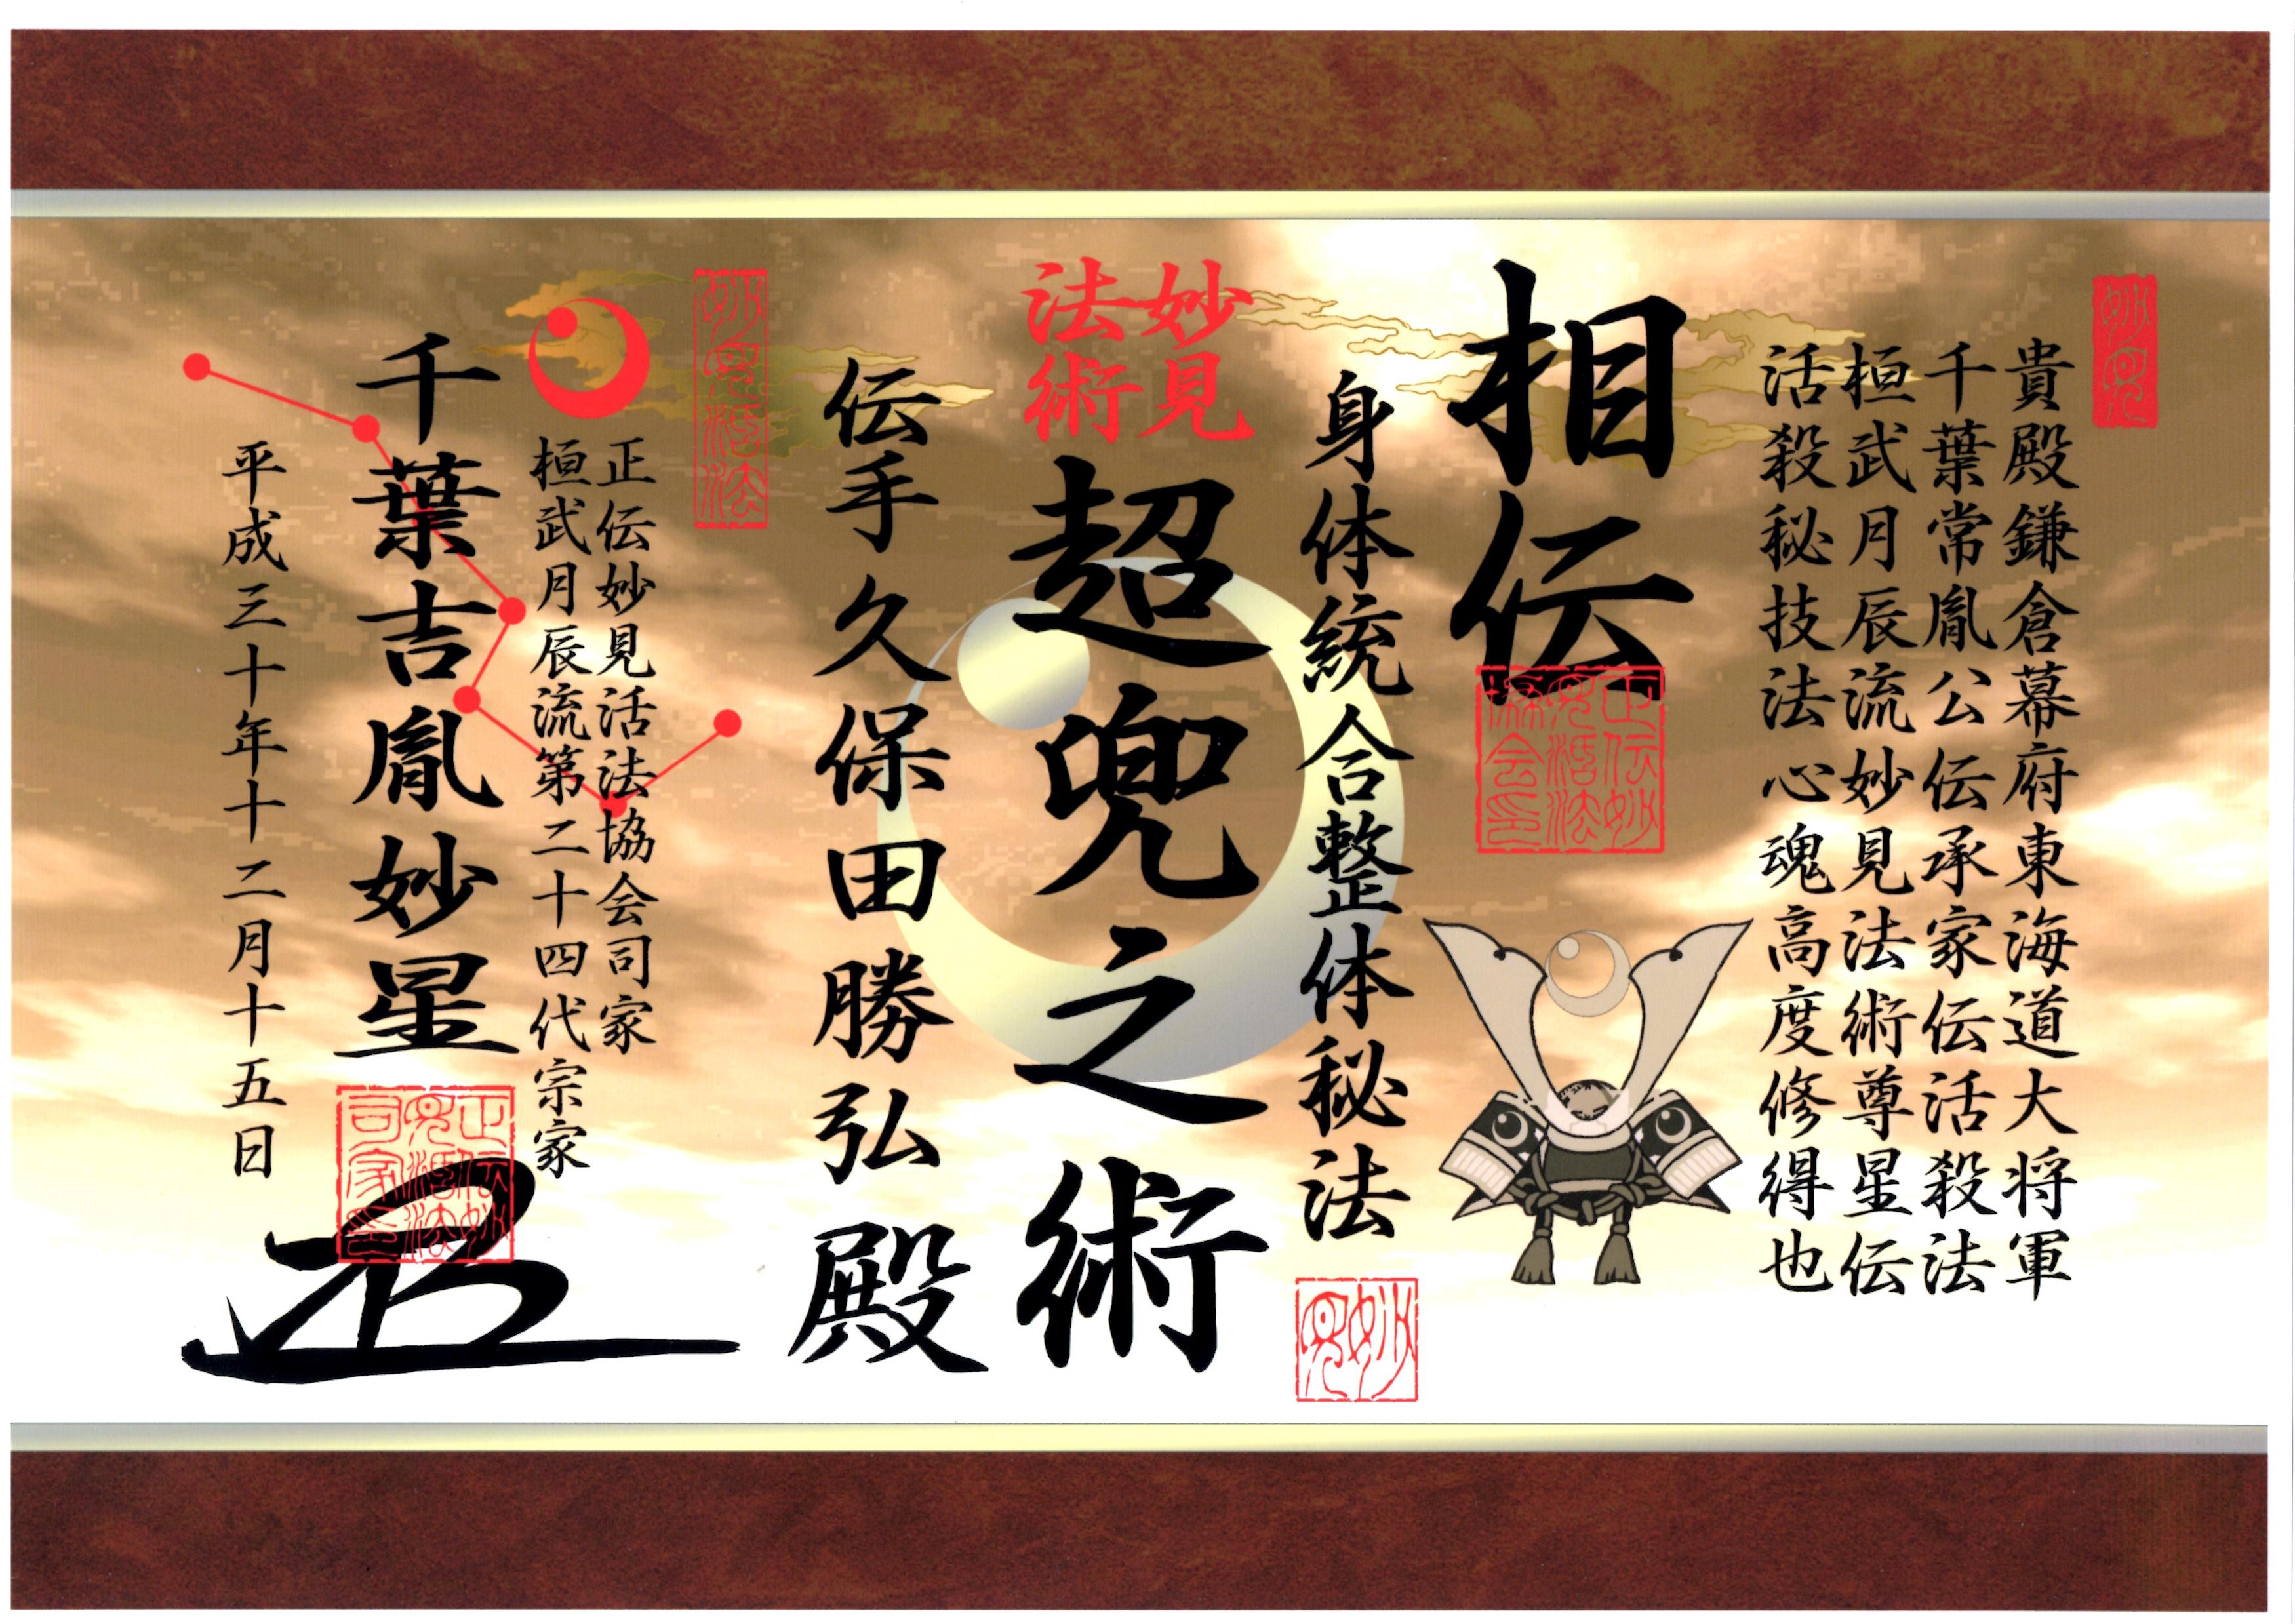 妙見
貴殿鎌倉幕府東海道大将軍
千葉常胤公伝承家伝活殺法
桓武月辰流妙見法術尊星伝
活殺秘技法心魂高度修得也
相伝
正伝妙
見活法
協会印
身体統合整体秘法
妙見
妙見
法術
超兜之術
伝手久保田勝弘殿
妙見活法
正伝妙見活法協会司家
桓武月辰流第二十四代宗家
千葉吉胤妙星
正伝妙
見活法
司家印
平成三十年十二月十五日